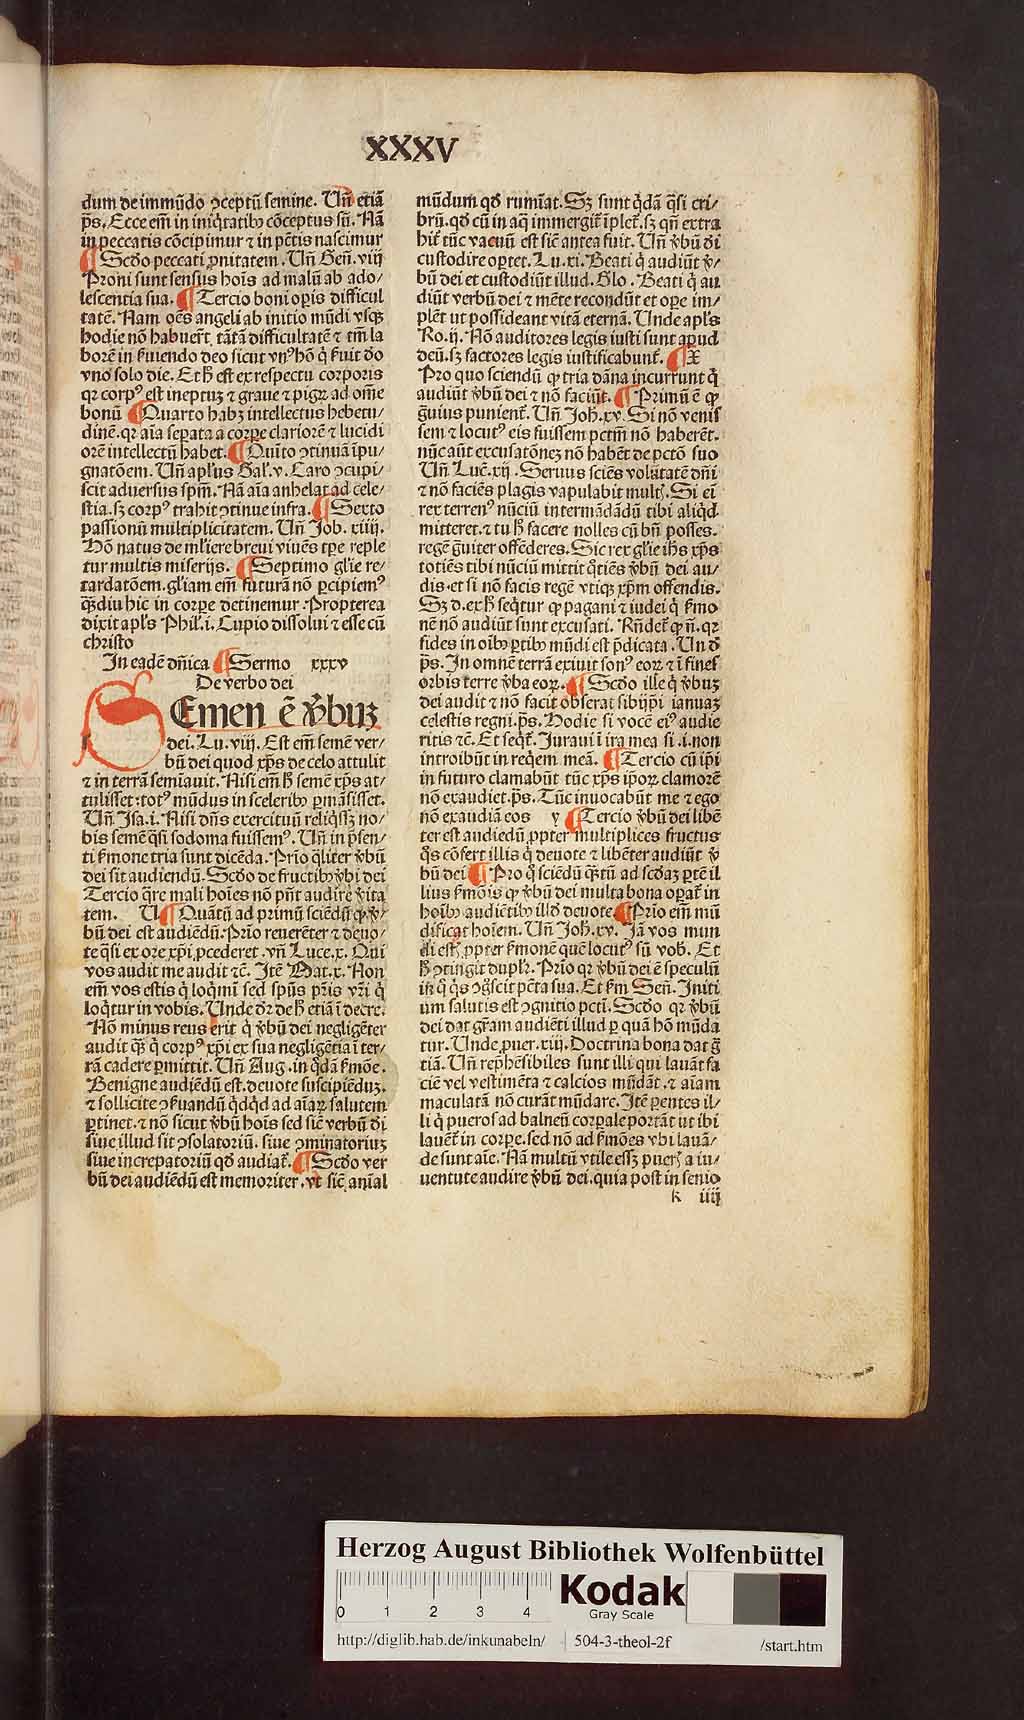 XXXV
dum de immūdo ꝯceptū semine. Vñ etiā
p̄s. Ecce em̄ in iniq̇tatibꝰ cōceptus sū. Nā
in peccatis cōcipimur ⁊ in pc̄tis nascimur
¶ Scd̄o peccati ꝓnitatem. Vñ Geñ. viij
Proni sunt sensus hoīs ad malū ab ado/
lescentia sua. ¶ Tercio boni oꝑis difficul
tatē. Nam oēs angeli ab initio mūdi vsqꝫ
hodie nō habuer̄t tātā difficultatē ⁊ tm̄ la
borē in ẜuiendo deo sicut vnꝰ hō q̇ ẜuit deo
vno solo die. Et h̄ est ex respectu corporis
qꝛ corpꝰ est ineptuꝫ ⁊ graue ⁊ pigꝝ ad om̄e
bonū ¶ Quarto habꝫ intellectus hebetu/
dinē. qꝛ aīa seꝑata a corpe clariorē ⁊ lucidi
orē intellectū habet. ¶ Quīto ꝯtinuā īpu/
gnatōem. Vñ apl'us Gal'. v. Caro ꝯcupi/
scit aduersus spm̄. Nā aīa anhelat ad cele/
stia. sꝫ corpꝰ trahit ꝯtinue infra. ¶ Sexto
passionū multiplicitatem. Vñ Job. xiiij.
Hō natus de mĺiere breui viuēs tꝑe reple
tur multis miserijs. ¶ Septimo gĺie re/
tardatōem. gĺiam em̄ futurā nō ꝑcipiemꝰ
qꝫdiu hic in corpe detinemur. Propterea
dixit apl's Phil'. i. Cupio dissolui ⁊ esse cū
christo
In eadē dñica ¶ Sermo xxxv
De verbo dei
SEmen ē v̄buꝫ
dei. Lu. viij. Est em̄ semē ver/
bū dei quod xp̄s de celo attulit
⁊ in terrā semīauit. Nisi em̄ h̄ semē xp̄s at/
tulisset: totꝰ mūdus in sceleribꝰ ꝑmāsisset.
Vñ Isa. i. Nisi dn̄s exercituū reliq̇ssꝫ no/
bis semē q̄si sodoma fuissemꝰ. Vñ in p̄sen/
ti ẜmone tria sunt dicēda. Prīo qĺiter v̄bū
dei sit audiendū. Scd̄o de fructibꝰ v̄bi dei
Tercio q̄re mali hoīes nō pn̄t audire v̄ita
tem. V ¶ Quātū ad primū sciēdū ꝙ v̄/
bū dei est audiēdū. Prīo reuerēter ⁊ deuo/
te q̄si ex ore xp̄i ꝓcederet. vñ Luce. x. Qui
vos audit me audit ⁊c̄. Itē Mat. x. Non
em̄ vos estis q̇ loq̇mī sed spūs pr̄is vr̄i q̇
loq̇tur in vobis. Unde dr̄ de h̄ etiā ī decre.
Nō minus reus erit q̇ v̄bū dei negligēter
audit qꝫ q̇ corpꝰ xp̄i ex sua negligētia ī ter/
rā cadere ꝑmittit. Vñ Aug. in q̇dā ẜmōe.
Benigne audiēdū est. deuote suscipiēduꝫ.
⁊ sollicite ꝯẜuandū q̇dq̇d ad aīaꝝ salutem
ꝑtinet. ⁊ nō sicut v̄bū hoīs sed sic̄ verbū di
siue illud sit ꝯsolatoriū. siue ꝯminatoriuꝫ
siue increpatoriū qd̄ audiat̄. ¶ Scd̄o ver
bū dei audiēdū est memoriter. vt sic̄ anīal
mūdum qd̄ rumīat. Sꝫ sunt q̇dā q̄si cri/
brū. qd̄ cū in aq̄ immergit̄ īplet̄. sꝫ qn̄ extra
hit̄ tūc vacuū est sic̄ antea fuit. Vñ v̄bū di
custodire oꝑtet. Lu. xi. Beati q̇ audiūt v̄/
bū dei et custodiūt illud. Glo. Beati q̇ au
diūt verbū dei ⁊ mēte recondūt et oꝑe im/
plēt ut possideant vitā eternā. Unde apl's
Ro. ij. Nō auditores legis iusti sunt apud
deū. sꝫ factores legis iustificabunt̄. ¶ X
Pro quo sciendū ꝙ tria dāna incurrunt q̇
audiūt v̄bū dei ⁊ nō faciūt. ¶ Primū ē ꝙ
ḡuius punient̄. Vñ Joh. xv. Si nō venis
sem ⁊ locutꝰ eis fuissem pctm̄ nō haberēt.
nūc aūt excusatōneꝫ nō habēt de pctō suo
Vñ Luc̄. xij. Seruus sciēs volūtatē dñi
⁊ nō faciēs plagis vapulabit mult'. Si eī
rex terrenꝰ nūciū intermādādū tibi aliq̇d
mitteret. ⁊ tu h̄ facere nolles cū bn̄ posses.
regē ḡuiter offēderes. Sic rex gĺie ih̄s xp̄s
totiēs tibi nūciū mittit q̇tiēs v̄bū dei au/
dis. et si nō facis regē vtiqꝫ xp̄m offendis.
Sꝫ d. ex h̄ seq̇tur ꝙ pagani ⁊ iudei q̇ ẜmo
nē nō audiūt sunt excusati. Rn̄det̄ ꝙ n̄. qꝛ
fides in oībꝰ ꝑtibꝰ mūdi est p̄dicata. Un d
p̄s. In omnē terrā exiuit sonꝰ eoꝝ ⁊ ī fines
orbis terre v̄ba eoꝝ. ¶ Scd̄o ille q̇ v̄buꝫ
dei audit ⁊ nō facit obserat sibijpi ianuaꝫ
celestis regni. p̄s. Hodie si vocē eiꝰ audie
ritis ⁊c̄. Et seq̇t̄. Juraui ī ira mea si. i. non
introibūt in req̇em meā. ¶ Tercio cū ip̄i
in futuro clamabūt tūc xp̄s ip̄oꝝ clamorē
nō exaudiet. p̄s. Tūc inuocabūt me ⁊ ego
nō exaudiā eos y ¶ Tercio v̄bū dei libē
ter est audiedū ꝓpter multiplices fructus
q̇s cōfert illis q̇ deuote ⁊ libēter audiūt v̄
bū dei ¶ Pro q̇ sciēdū q̄ꝫtū ad scd̄aꝫ ꝑtē il
lius ẜmōis ꝙ v̄bū dei multa bona oꝑat̄ in
hoībꝰ audiētibꝰ illd̄ deuote. ¶ Prīo em̄ mū
dificat hoīem. Vñ Joh. xv. Jā vos mun
di estꝭ ꝓpter ẜmonē quē locutꝰ sū vob̄. Et
h̄ ꝯtingit dupĺr. Prīo qꝛ v̄bū dei ē speculū
in q̇ q̇s ꝯg̊scit pc̄ta sua. Et ẜm Señ. Initi
um salutis est ꝯgnitio pcti. Scd̄o qꝛ v̄bū
dei dat gr̄am audiēti illud ꝑ quā hō mūda
tur. Unde ꝓuer. xiij. Doctrina bona dat ḡ
tiā. Vñ rep̄hēsibiles sunt illi qui lauāt fa
ciē vel vestimēta ⁊ calcios mūdāt. ⁊ aīam
maculatā nō curāt mūdare. Itē ꝑentes il/
li q̇ pueros ad balneū corꝑale portāt ut ibi
lauēt̄ in corꝑe. sed nō ad ẜmōes vbi lauā/
de sunt aīe. Nā multū vtile essꝫ puerꝭ a iu/
uentute audire v̄bū dei. quia post in senio
k iiij
Herzog August Bibliothek Wolfenbüttel
0 1 2 3 4
Kodak
Gray Scale
http://diglib.hab.de/inkunabeln/ 504-3-theol-2f /start.htm